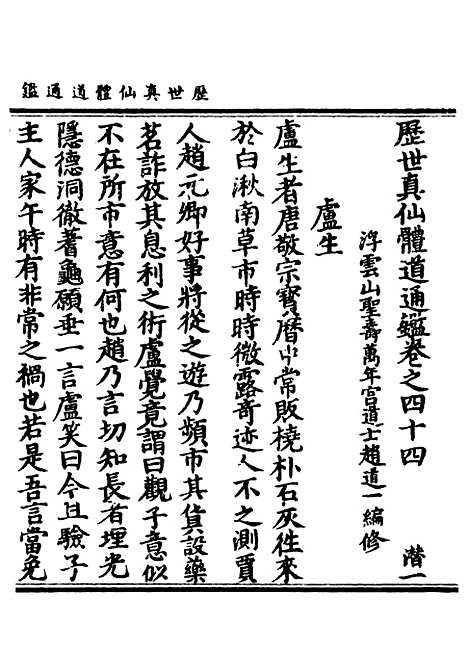 歷世真仙體道通鑑
歷世真仙體道通鑑卷之四十四 潛一
浮雲山聖壽萬年宮道士趙道一編修
盧生
盧生者唐敬宗寶曆中常販橈朴石灰徃來
於白湫南草市時時微露奇迹人不之測賈
人趙元卿好事將從之遊乃頻市其貨設藥
茗詐放其息利之術盧覺竟謂曰觀子意似
不在所市意有何也趙乃言切知長者埋光
隱德洞徹蓍龜願垂一言盧笑曰今且驗子
主人家午時有非常之禍也若是吾言當免